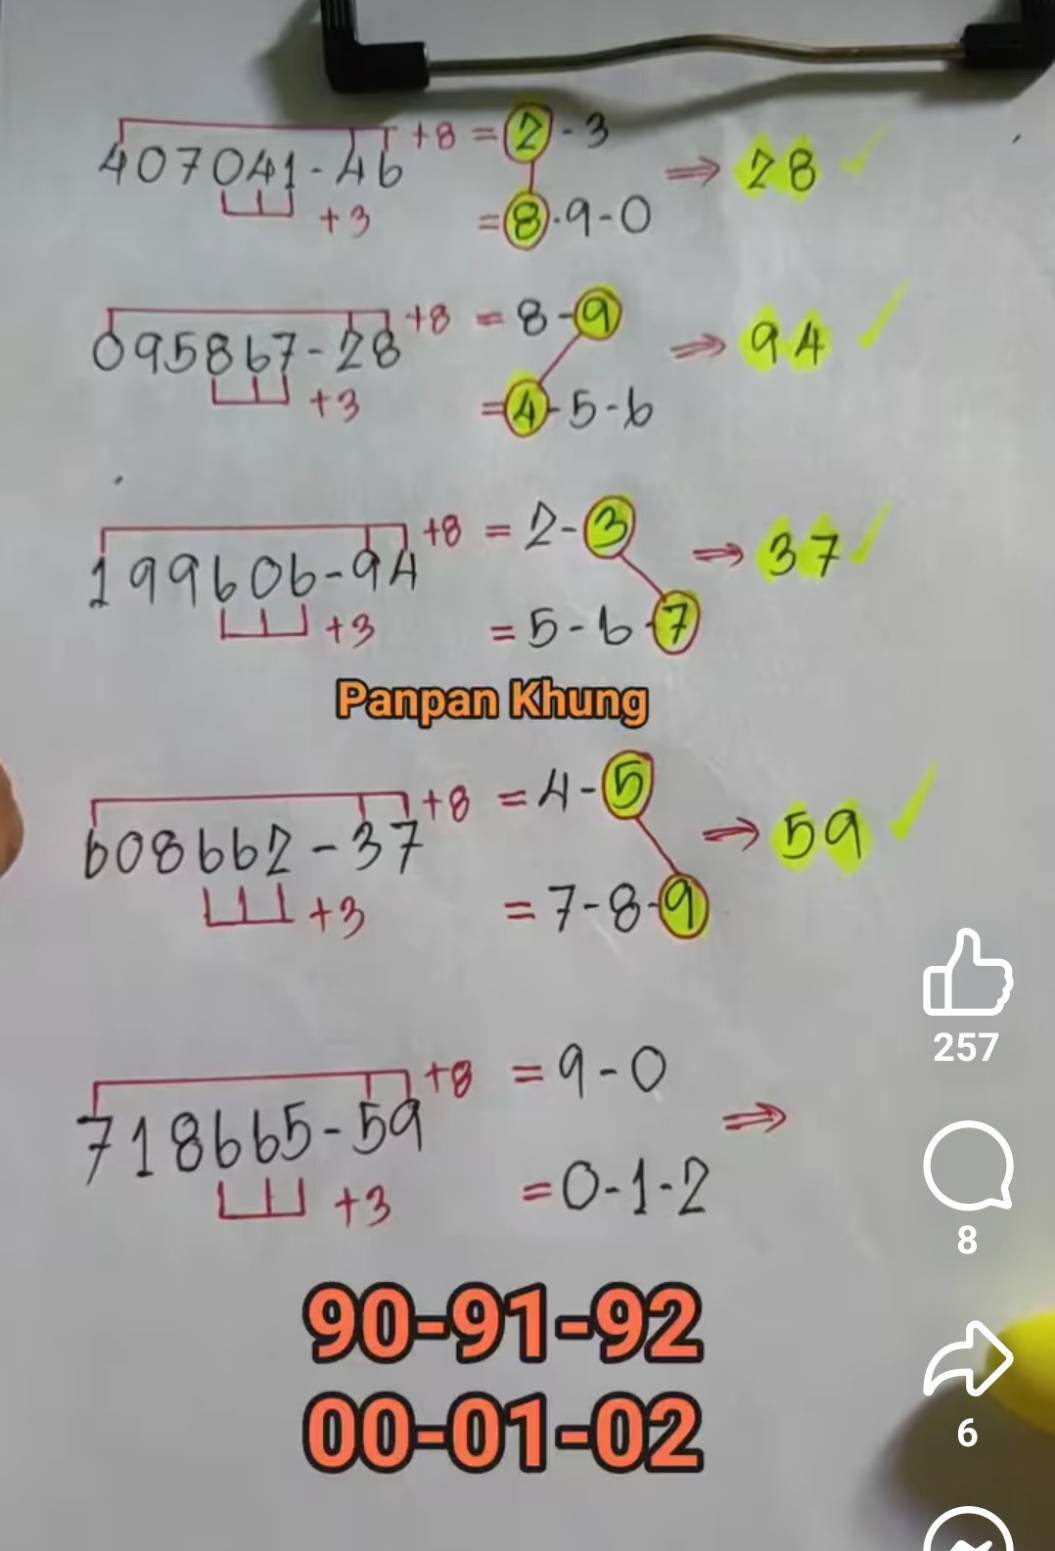 407041-46 +8 = 2-3 ⇒ 28 ✓
+3 = 8-9-0
095867-28 +8 = 8-9 ⇒ 94 ✓
+3 = 4-5-6
199606-94 +8 = 2-3 ⇒ 37 ✓
+3 = 5-6-7
Panpan Khung
608662-37 +8 = 4-5 ⇒ 59 ✓
+3 = 7-8-9
257
718665-59 +8 = 9-0 ⇒
+3 = 0-1-2
8
90-91-92
00-01-02
6